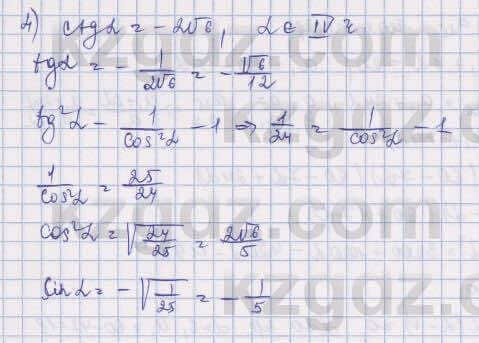 4) ctgα = -2√6, α ∈ IV ч
tgα = - 1/(2√6) = - √6/12
tg²α - 1/cos²α - 1 ⇒ 1/24 = 1/cos²α - 1
1/cos²α = 25/24
cos²α = √(24/25) = 2√6/5
sinα = - √(1/25) = - 1/5
kzgdz.com